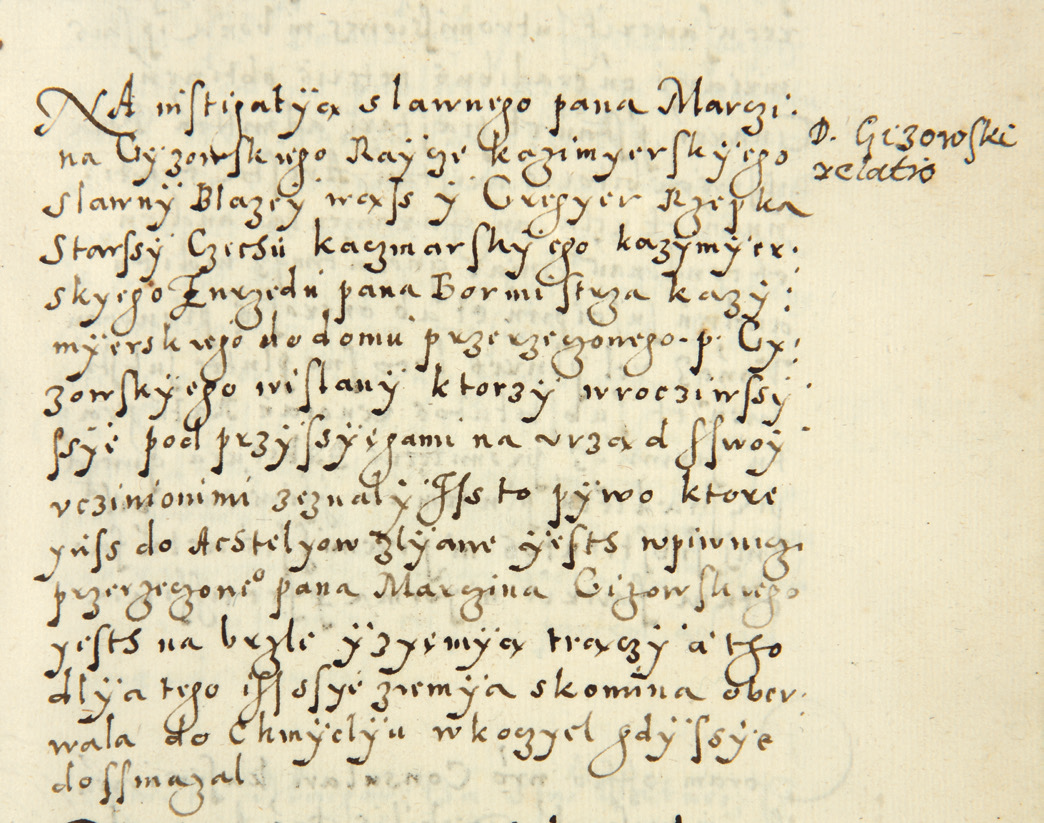 NA instigatyą slawnego pana Marczi.
na Gyzowskiego Raycze kazimyerskyego
slawny Blazey wąss y Gregyer Rzepka
Starssy Czechu kaczmarskyego kazymyer.
skyego Zurzedu pana Bormistrza kazy:
myerskiego do domu przerzeczonego. p. Gy:
zowskyego wislany ktorzy wrocziwssy
ssye pod przyssyęgami na vrząd sswoy
vczinionimi zeznaly Iss to pywo ktore
yuss do Achtelyow zlyane yesth wpiwnicz.
przerzeczone° pana Marczina Gizowskiego
yesth na brzle y zyemyą trączy a tho
dlya tego iss ssye ziemya skomina ober.
wala do Chmyelyu wkoczyel gdy ssye
dossmazal
D. Gizowski
relatio